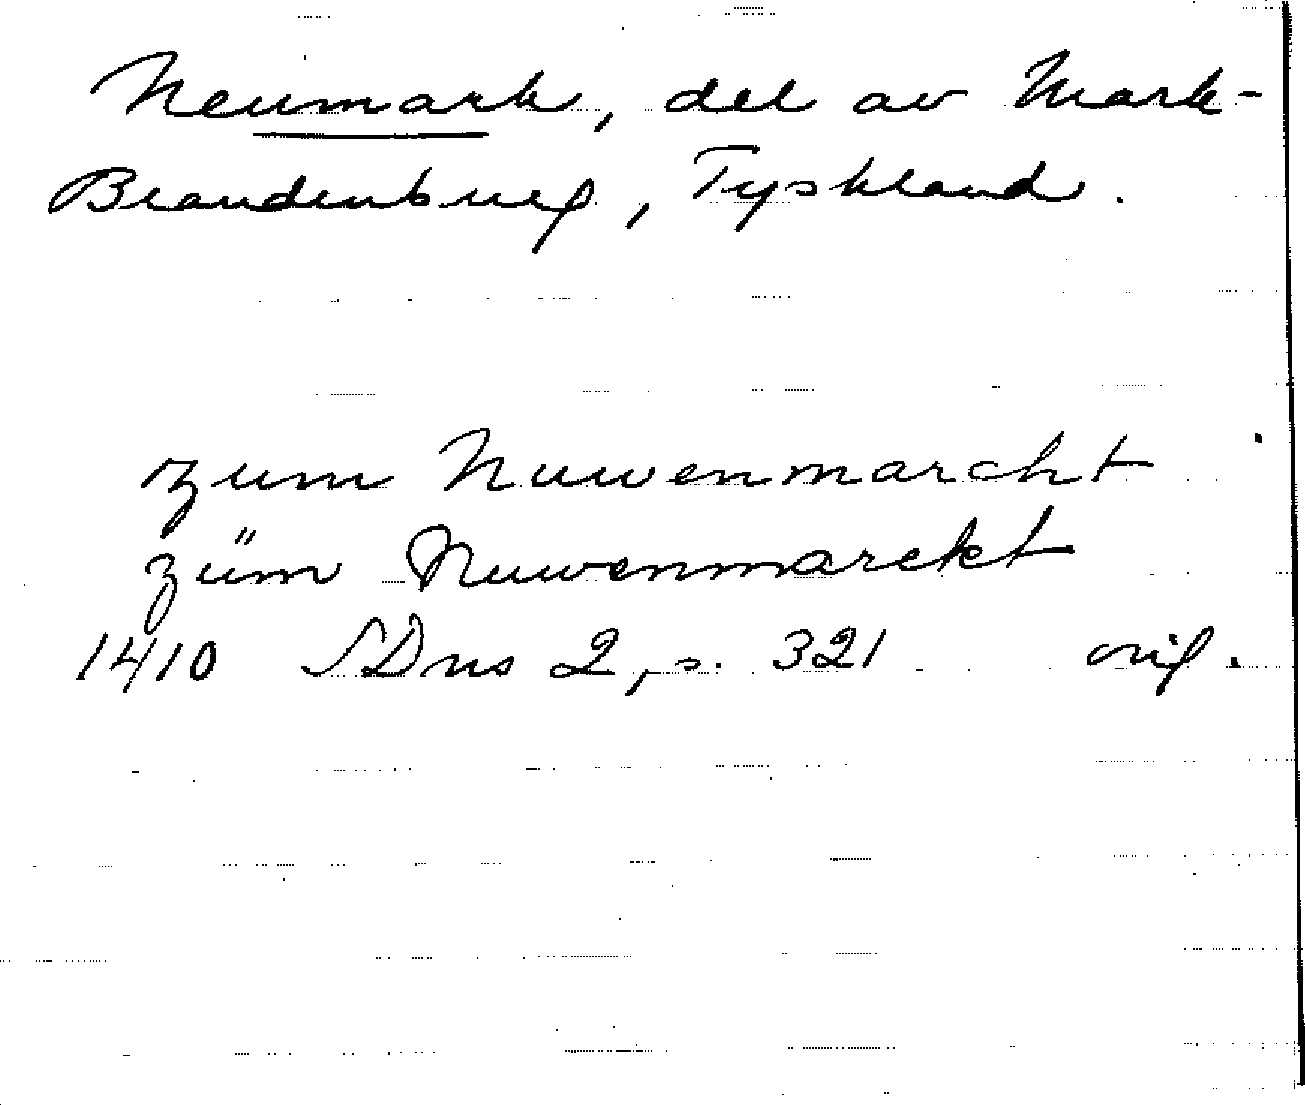 Neumark, del av Mark-
Brandenburg, Tyskland.
zum Nuwenmarcht
züm Nuwenmarckt
1410 SDns 2, s. 321 orig.